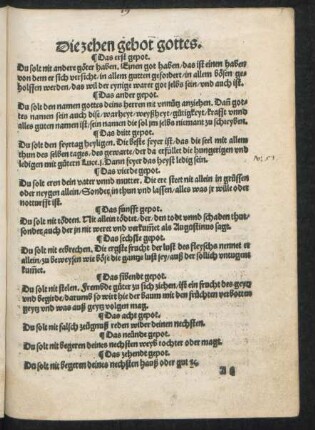 Die zehen gebot gottes.
¶ Das erst gepot.
Du solt nit andere götter haben, Einen got haben, das ist einen haben
von dem er sich versicht, in allem gutten gefordert, in allem bösen ge⸗
holffen werden, das wil der eynige warer got selbs sein, und auch ist.
¶ Das ander gepot.
Du solt den namen gottes deins herren nit unnütz anziehen. Dann got⸗
tes namen sein auch dise, warheyt, weyßheyt, güttigkeyt, krafft unnd
alles guten namen ist, sein namen die sol im selbs niemant zu schreyben.
¶ Das dritt gepot.
Du solt den feyrtag heyligen. Die beste feyer ist, das die seel mit allem
thun des selben tages, des gewarte, der da erfüllt die hungerigen und
ledigen mit gütern Luce.j. Dann feyer das heyst ledig sein.
¶ Das vierde gepot.
Du solt eren dein vater unnd mutter. Die ere steet nit allein in grüssen
oder neygen allein, Sonder in thun und lassen, alles was je wille oder
notturfft ist.
¶ Das fünfft gepot.
Du solt nit tödten. Nit allein tödtet, der, den todt unnd schaden thut,
sonder, auch der jn nit weret und verkumet als Augustinus sagt.
¶ Das sechste gepot.
Du solt nit eebrechen. Die ergste frucht der lust des fleyschs nennet er
allein, zu beweysen wie böse die gantze lust sey, auß der sollich untugent
kumet.
¶ Das sibendt gepot.
Du solt nit stelen. Frembde güter zu sich ziehen, ist ein frucht des geyz
und begirde, darumb so wirt hie der baum mit den früchten verbotten
geytz und was auß geytz volgen mag.
¶ Das acht gepot.
Du solt nit falsch zeügnuß reden wider deinen nechsten.
¶ Das neündt gepot.
Du solt nit begeren deines nechsten weyb tochter oder magt.
¶ Das zehendt gepot.
Du solt nit begeren deines nechsten hauß oder gut ꝛc.